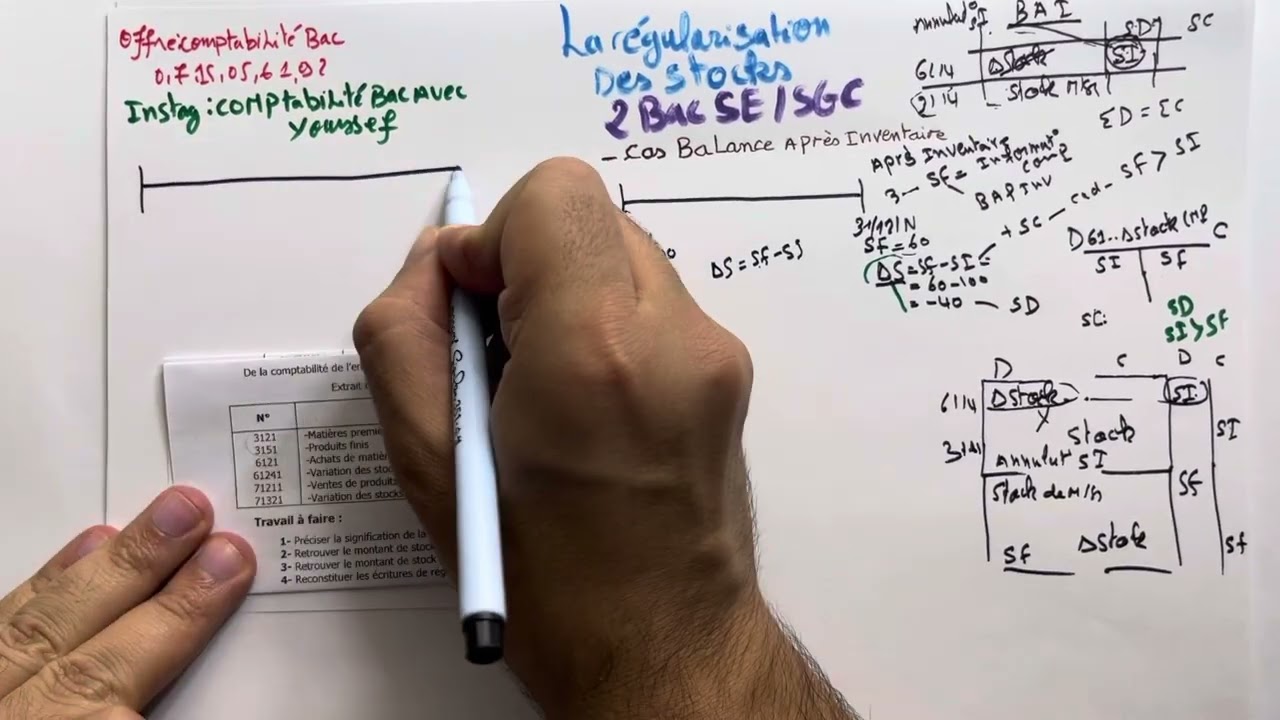 Offre:comptabilité Bac
0,7 15,05,61,92
Instag : comptabilité Bac Avec
Youssef
La régularisation
Des stocks
2 Bac SE / SGC
- Cas Balance Après Inventaire
B A I
SD SC
6114 Δstock SI
stock
ΣD = ΣC
Après Inventaire
3 - SF = Informat° comp
BAP INV
31/12/N
SF = 60
ΔS = SF - SI =
= 60 - 100
= -40 - SD
+ SC - càd - SF > SI
ΔS = SF - SI
D 61.. Δstock C
SI SF
SC:
SD
SI > SF
D C D C
6114 Δstock SI
Stock SI
Annulat° SI
Stock de M/se SF
Δstock SF
SF
De la comptabilité de l'en
Extrait
N°
3121 -Matières premiè
3151 -Produits finis
6121 -Achats de matiè
61241 -Variation des stoc
71211 -Ventes de produits
71321 -Variation des stocks
Travail à faire :
1- Préciser la signification de la
2- Retrouver le montant de stoc
3- Retrouver le montant de stock
4- Reconstituer les écritures de reg